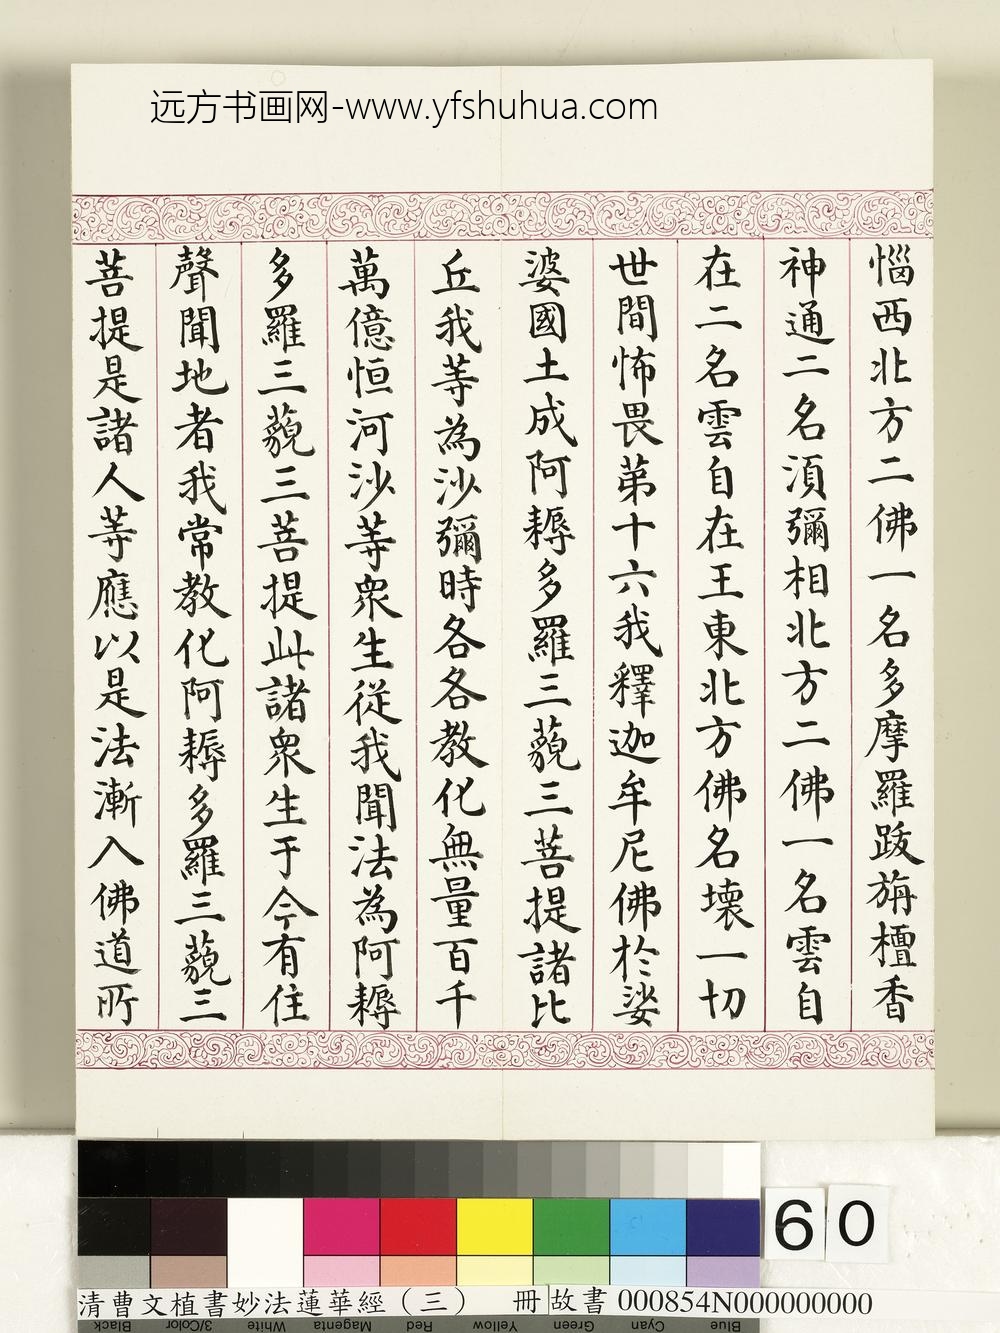 远方书画网-www.yfshuhua.com
惱西北方二佛一名多摩羅跋旃檀香
神通二名湏彌相北方二佛一名雲自
在二名雲自在王東北方佛名壞一切
世間怖畏第十六我釋迦牟尼佛於娑
婆國土成阿耨多羅三藐三菩提諸比
丘我等為沙彌時各各教化無量百千
萬億恒河沙等眾生從我聞法為阿耨
多羅三藐三菩提此諸眾生于今有住
聲聞地者我常教化阿耨多羅三藐三
菩提是諸人等應以是法漸入佛道所
60
清曹文植書妙法蓮華經（三） 冊 故書 000854N000000000
Black 3/Color White Magenta Red Yellow Green Cyan Blue